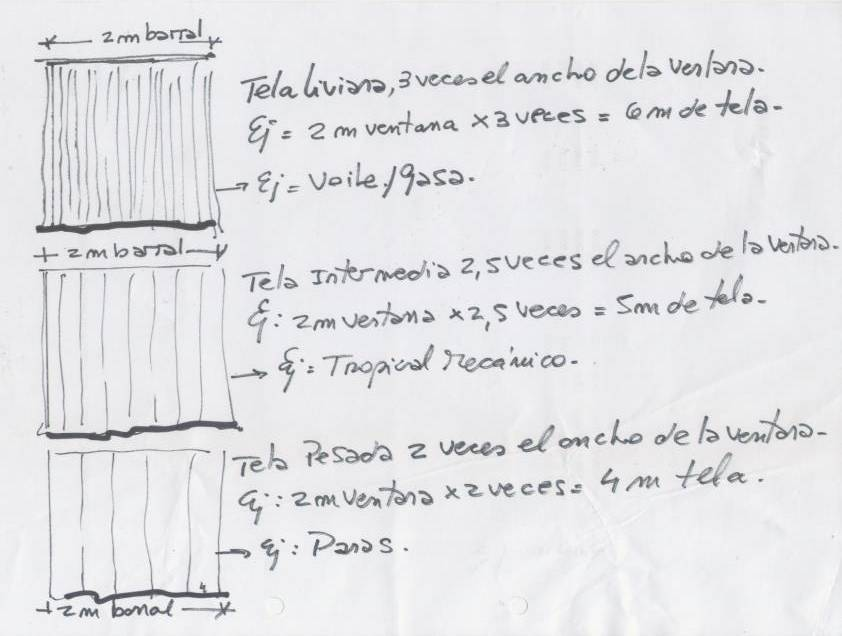 2 m barral
Tela liviana, 3 veces el ancho de la ventana.
Ej = 2 m ventana x 3 veces = 6 m de tela.
→ Ej = Voile / gasa.
2 m barral
Tela Intermedia 2,5 veces el ancho de la ventana.
Ej: 2 m ventana x 2,5 veces = 5m de tela.
→ Ej: Tropical mecánico.
Tela Pesada 2 veces el ancho de la ventana.
Ej: 2 m ventana x 2 veces = 4 m tela.
→ Ej: Panas.
2 m barral